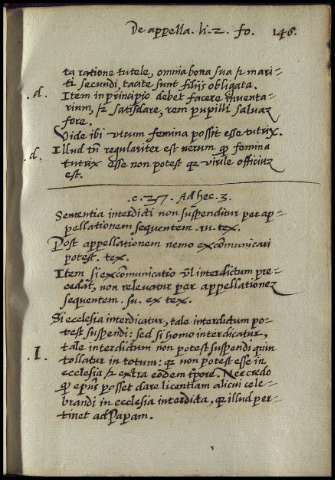 De appella. li. 2. fo. 146.
ta ratione tutele, omnia bona sua & mari-
ti secundi, tacite sunt filijs obligata.
.d. Item in principio debet facere inventa-
rium, & satisdare, rem pupilli salvam
fore.
Vide ibi utrum femina possit esse tutrix.
.d. Illud tñ regulariter est verum q̃ femina
tutrix esse non potest quia virile officium
est.
.c. 257. Ad hec. 3.
Sententia interdicti non suspenditur per ap-
pellationem sequentem. in. tex.
Post appellationem nemo excomunicari
potest. tex.
Item si excõmunicatio vel interdictum pre-
cedat, non relevatur per appellationem
sequentem. su. ex tex.
Si ecclesia interdicatur, tale interdictum po-
test suspendi: sed si homo interdicatur,
.I. tale interdictum non potest suspendi quin
tollatur in totum: quia non potest esse in
ecclesia & extra eodem tpore. Nec credo
q̃ epus posset dare licentiam alicui cele-
brandi in ecclesia interdicta, quia illud per-
tinet ad Papam.